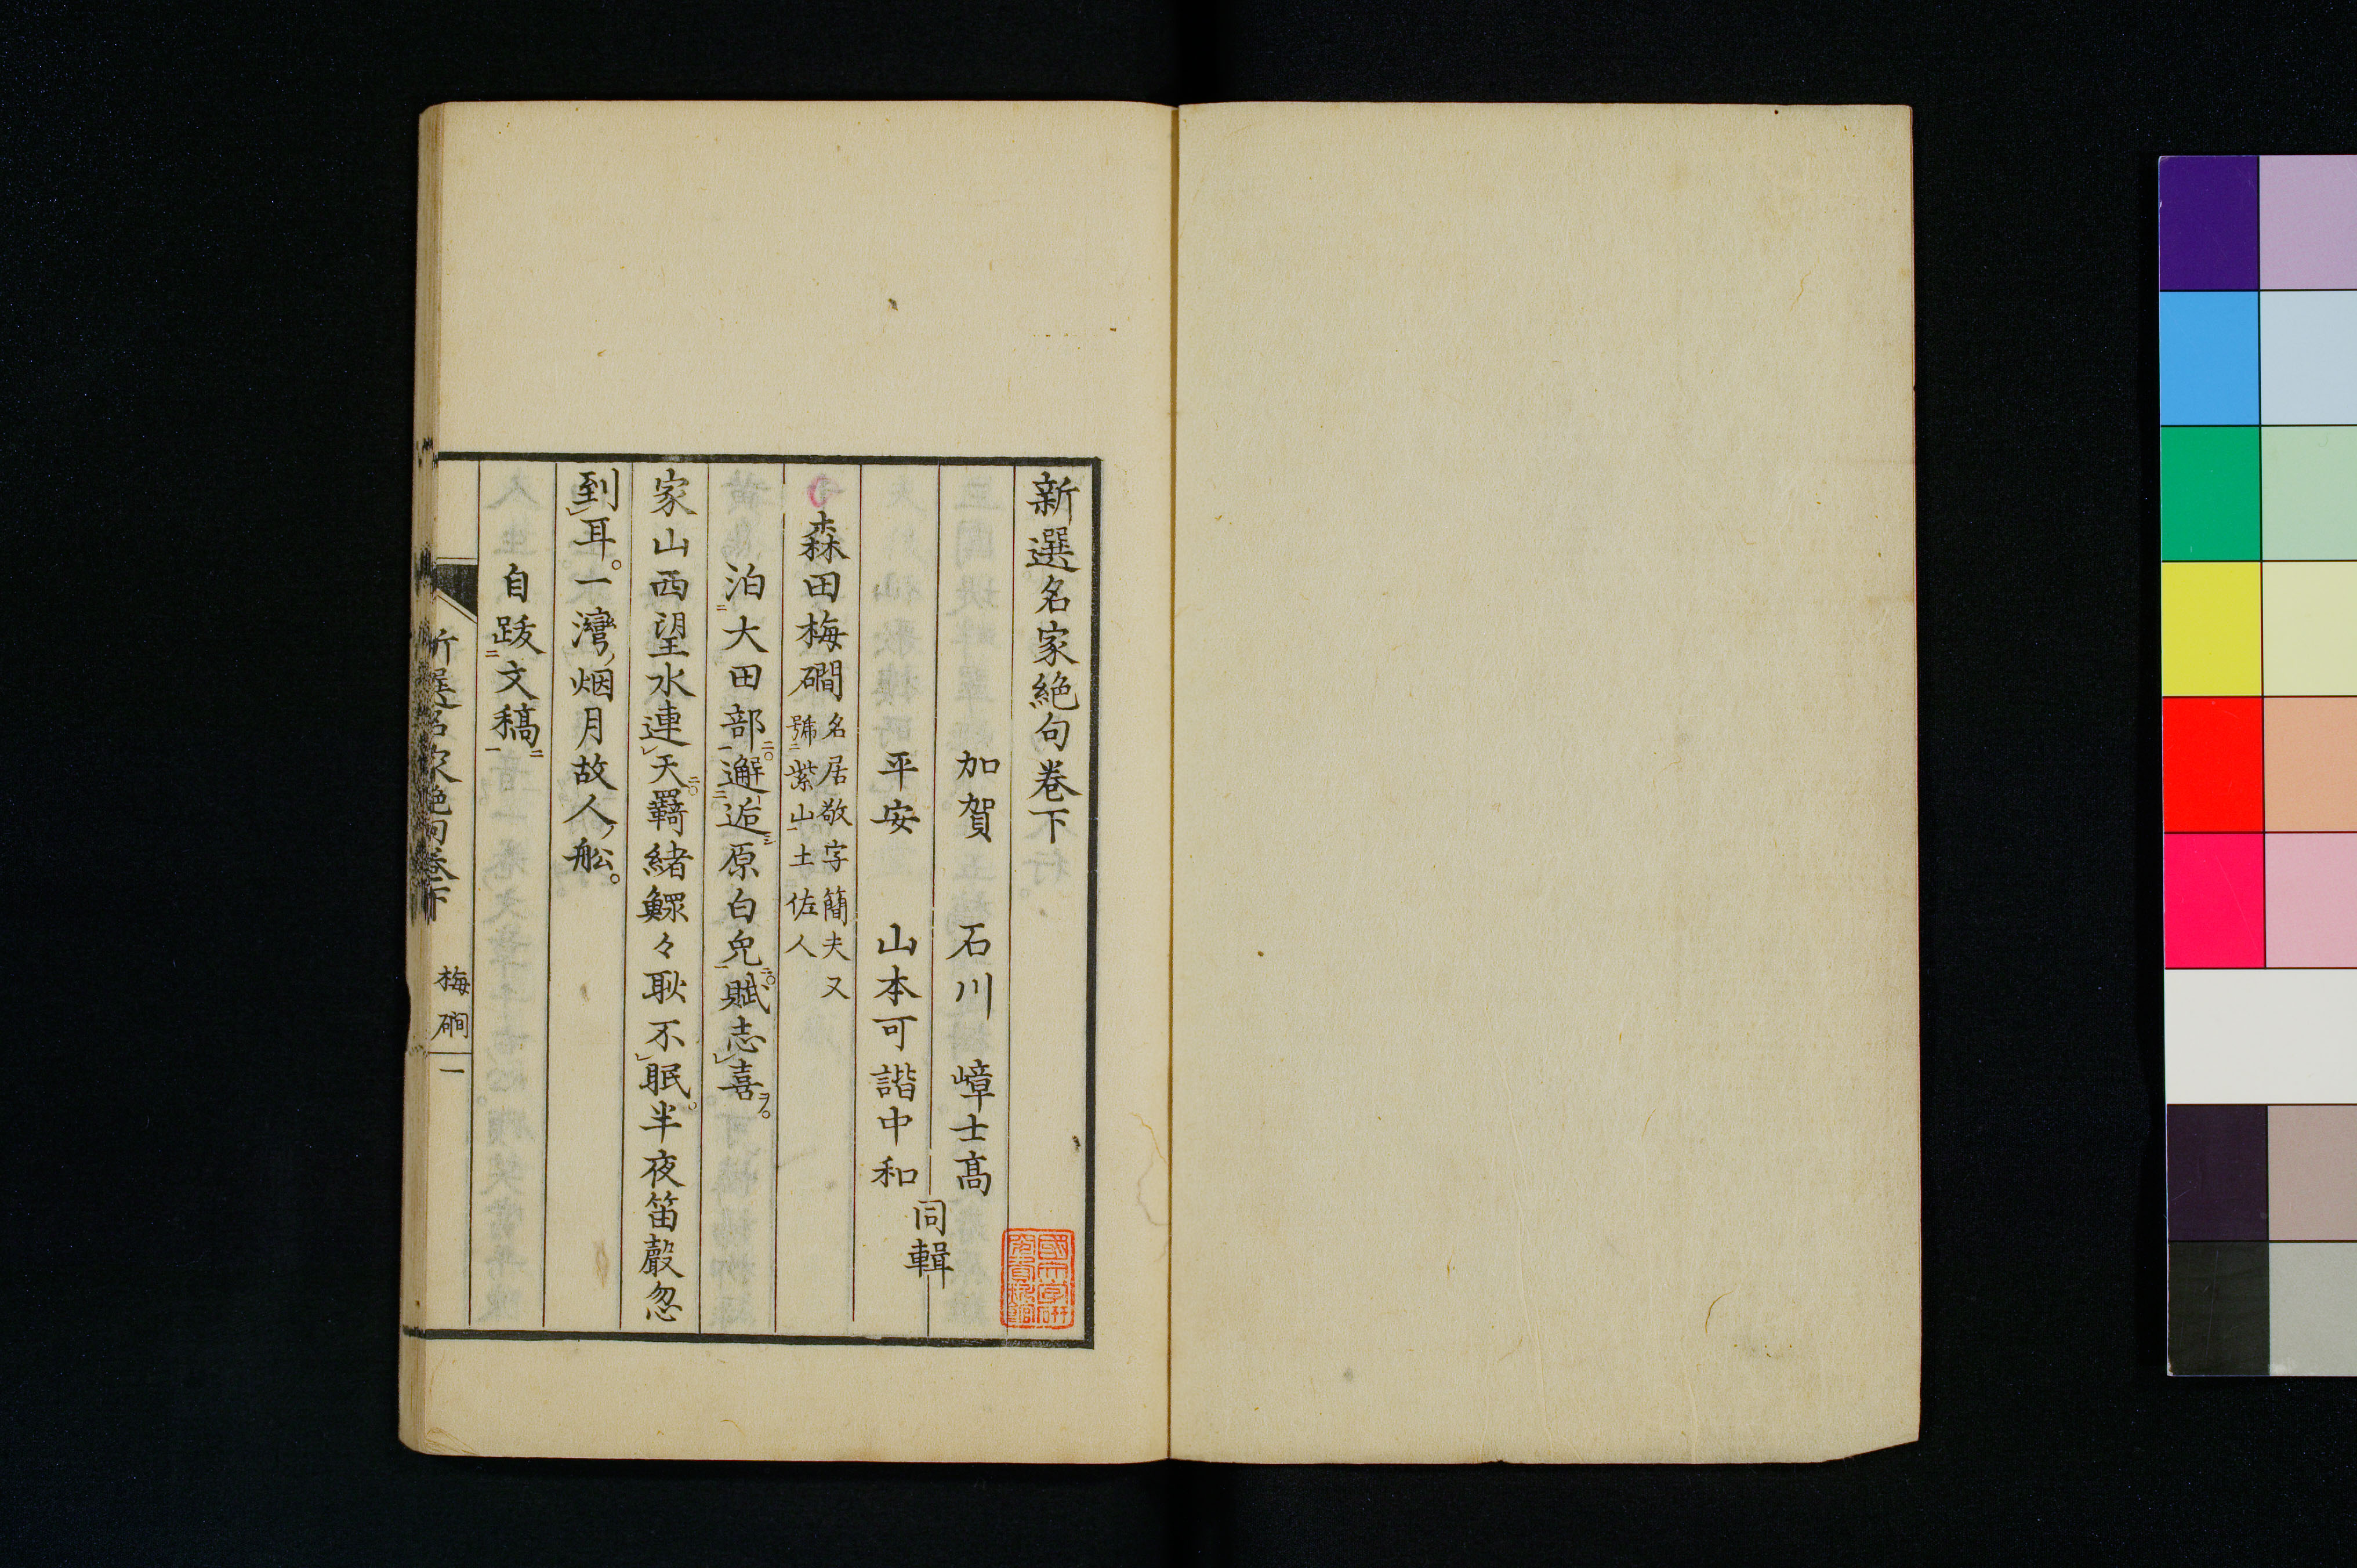 新選名家絶句卷下
加賀 石川 嶂士高
平安 山本可諧中和
同輯
森田梅磵 名居敬字簡夫又
號二紫山一土佐人
泊二大田部一邂二逅原白兒一賦志喜
家山西望水連天羇緒鰥々耿不眠半夜笛聲忽
到耳一灣烟月故人舩
自跋二文稿一
新選名家絶句卷下 梅磵 一